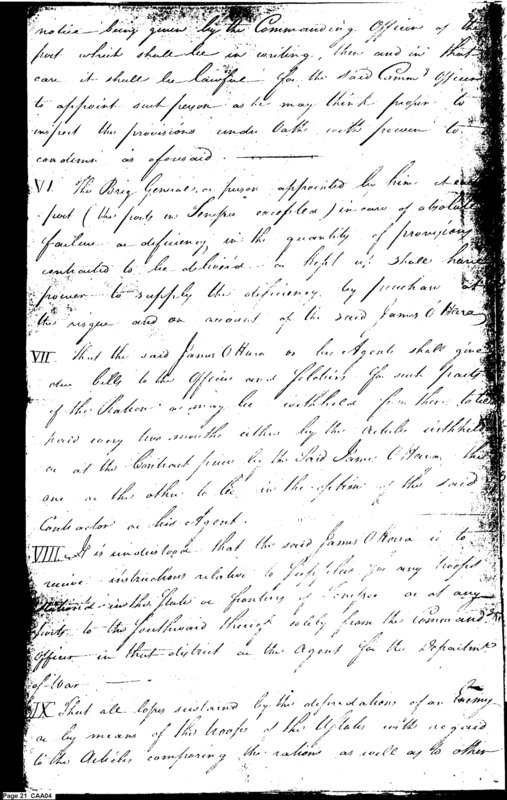 notice being given by the Commanding Officer of the
post which shall be in writing, then and in that
case it shall be lawful for the said Comm.g Officer
to appoint such person as he may think proper to
inspect the provisions under Oath with power to
condemn as aforesaid.
VI The Brig General, or person appointed by him at each
post (the posts in Tenesee excepted) in case of absolute
failure or deficiency in the quantity of provisions
contracted to be deliver'd or kept up shall have
power to supply the deficiency by purchase at
the risque and on account of the said James O'Hara
VII That the said James O'Hara or his Agents shall give
due bills to the Officers and Soldiers for such parts
of the Rations as may be withheld from them to be
paid every two months either by the Article withheld
or at the Contract price by the Said James O'Hara, the
one or the other to be in the option of the said
Contractor or his Agent.
VIII It is understood that the said James O'Hara is to
receive instructions relative to Supplies for any troops
station'd in the State or frontiers of Tenesee or at any
posts to the Southward thereof solely from the Command.g
Officer in that district or the Agent for the Departm.t
of War
IX That all losses sustained by the depredations of an Enemy
or by means of the troops of the U States with regard
to the Articles composing the rations as well as to other
Page 21 CAA04